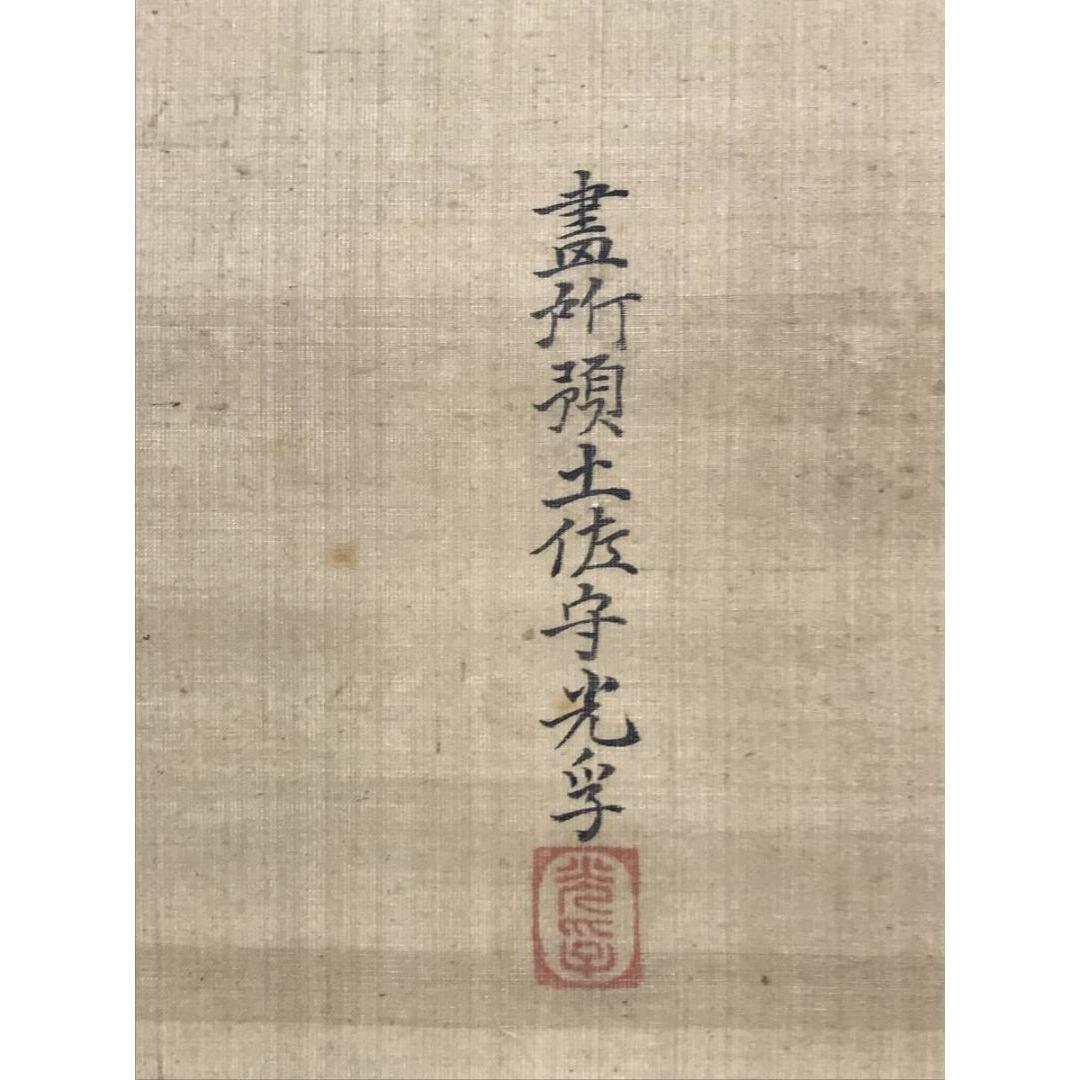 畫所預土佐守光孚
光孚